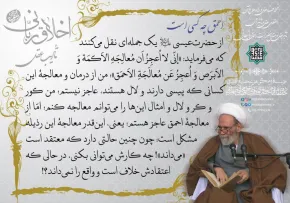 احمق چه کسی است
از حضرت عیسی یک جمله‌ای نقل می‌کنند
که می‌فرماید: «إنّی لا أعجزُ أن مُعالِجَةِ الأکمَةِ وَ
الأبرَصِ وَ أعجزُ عَن مُعالَجَةِ الأحمَقِ» من از درمان و معالجهٔ این
کسانی که پیسی دارند و لال هستند، عاجز نیستم؛ من کور
و کر و لال و امثال این‌ها را می‌توانم معالجه کنم؛ امّا از
معالجهٔ احمق عاجز هستم. یعنی، این‌قدر معالجهٔ این رذیله
مشکل است؛ چون چنین حالتی دارد که معتقد است
«می‌داند»! چه کارش می‌توانی بکنی. در حالی که
اعتقادش خلاف است و واقع را نمی‌داند؟!
اخلاق ربانی